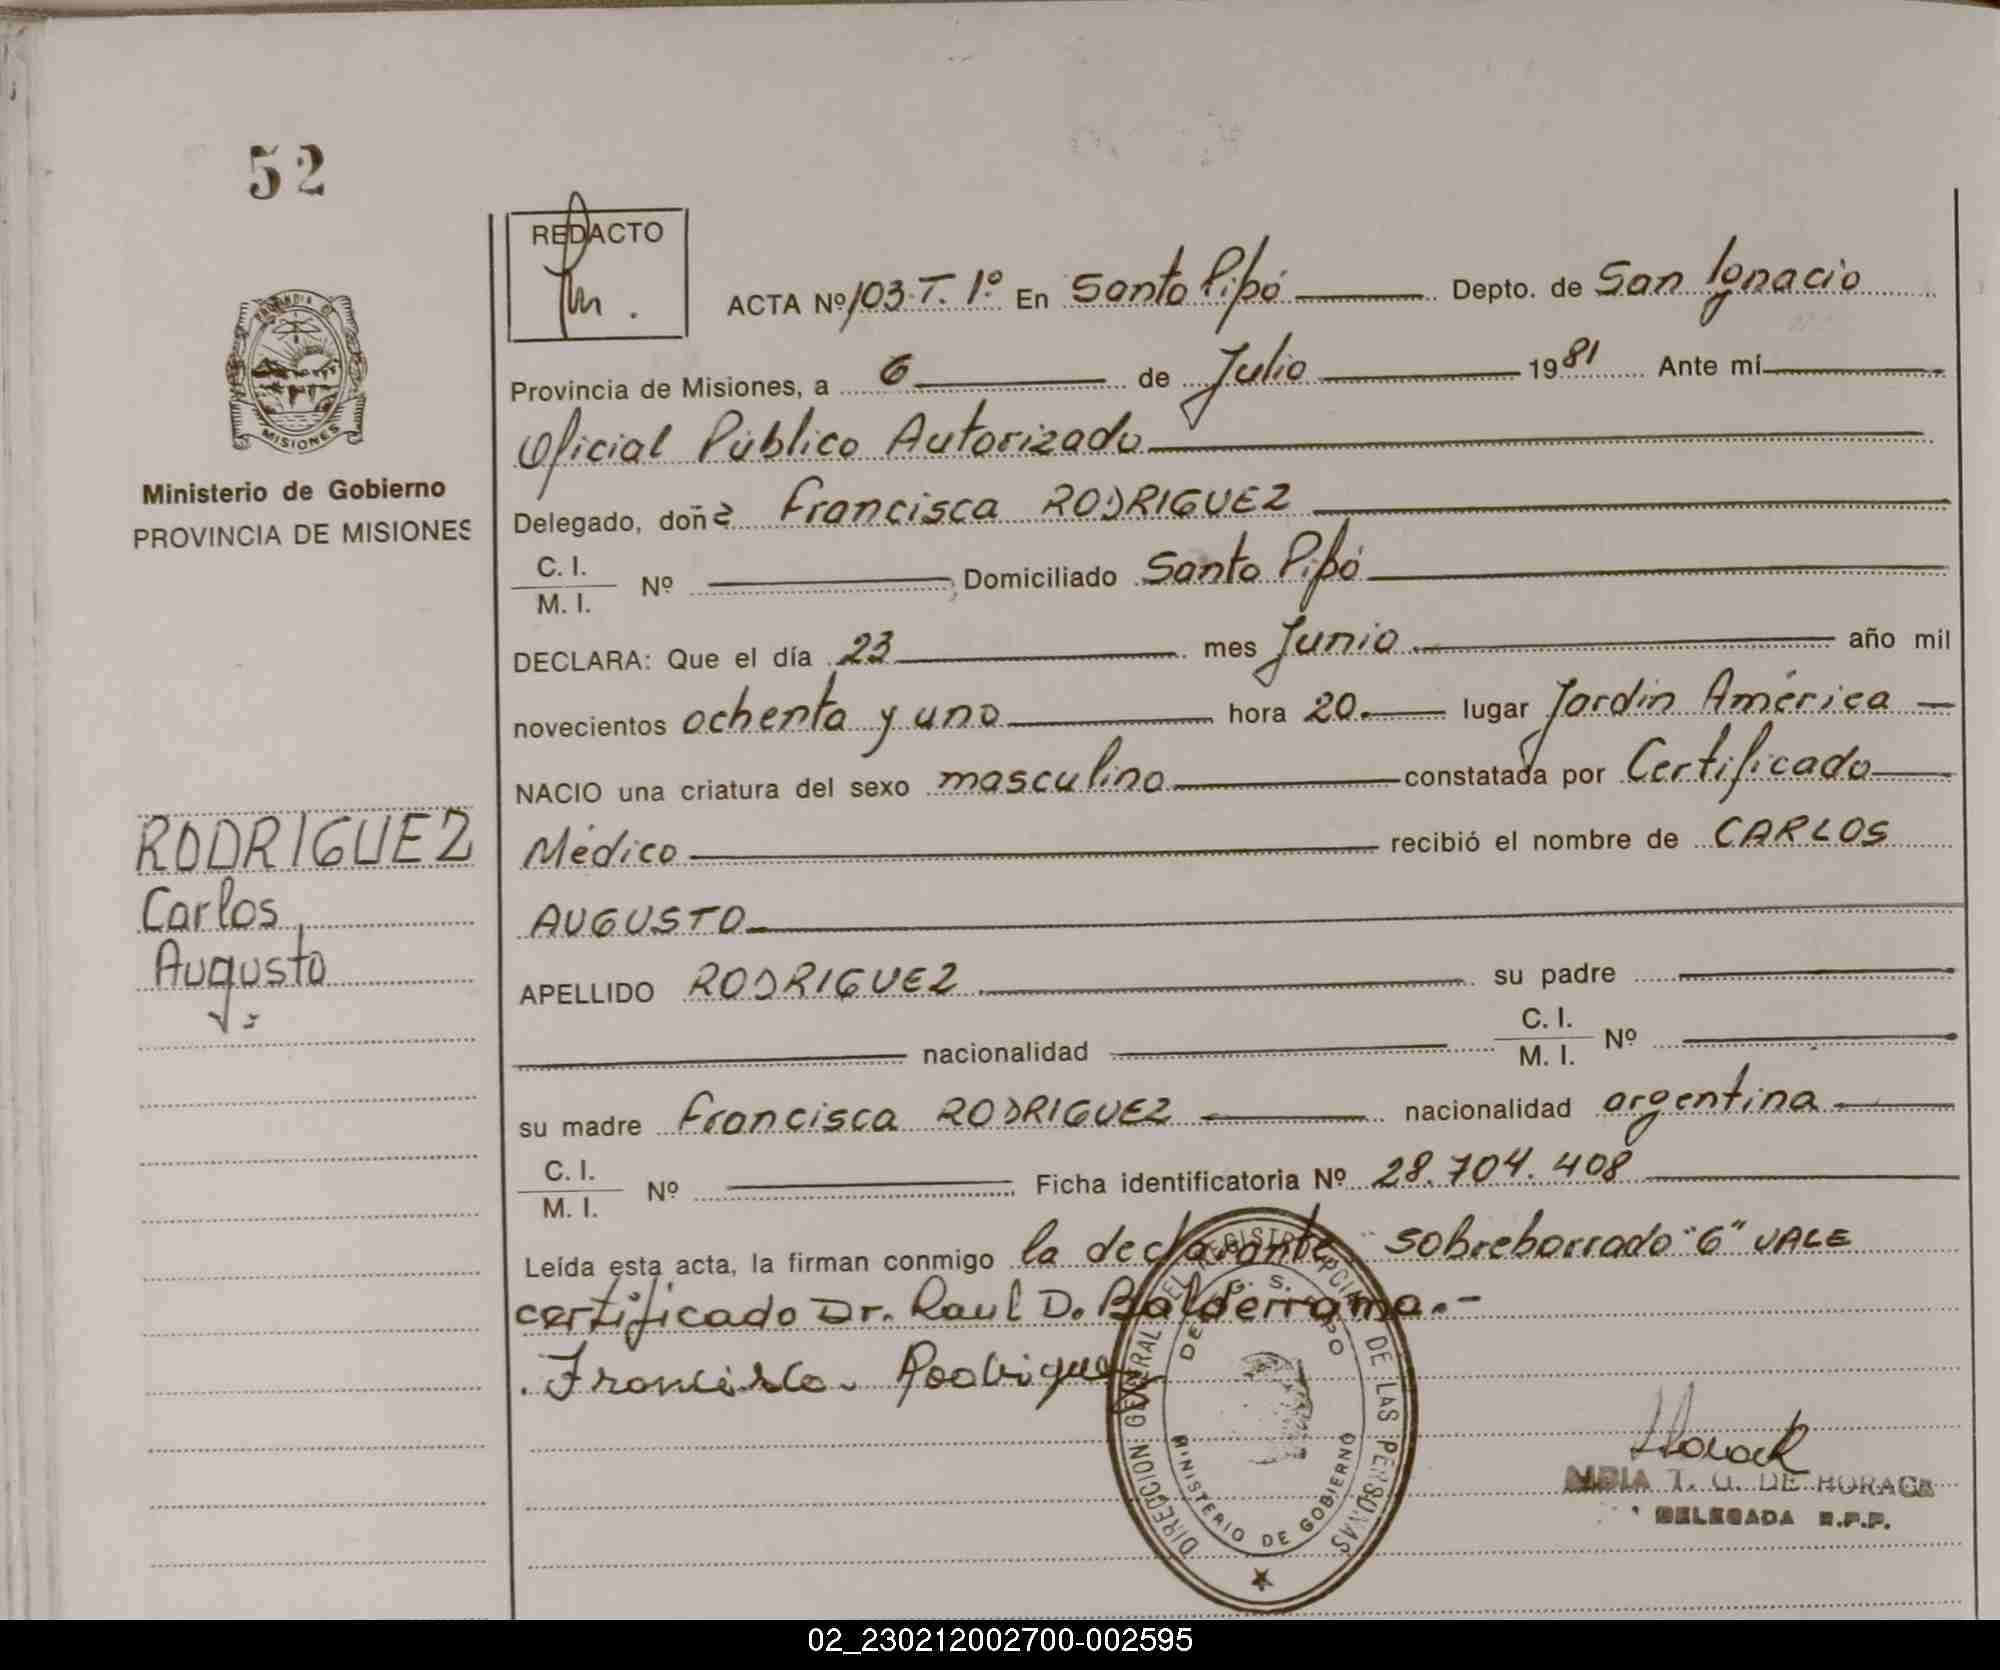 52
REDACTO
ACTA Nº 103-T. 1º En Santo Pipó Depto. de San Ignacio
Provincia de Misiones, a 6 de Julio 1981 Ante mí
Oficial Público Autorizado
Delegado, doña Francisca RODRIGUEZ
C. I.
M. I. Nº , Domiciliado Santo Pipó
DECLARA: Que el día 23 mes Junio año mil
novecientos ochenta y uno hora 20.- lugar Jardín América
NACIO una criatura del sexo masculino constatada por Certificado
Médico recibió el nombre de CARLOS
AUGUSTO
APELLIDO RODRIGUEZ su padre
nacionalidad C. I.
M. I. Nº
su madre Francisca RODRIGUEZ nacionalidad argentina
C. I.
M. I. Nº Ficha identificatoria Nº 28.704.408
Leída esta acta, la firman conmigo la declarante, sobreborrado "6" VALE
certificado Dr. Raul D. Balderrama.-
Francisca Rodriguez
PROVINCIA DE
MISIONES
Ministerio de Gobierno
PROVINCIA DE MISIONES
RODRIGUEZ
Carlos
Augusto
DIRECCION GENERAL DEL REGISTRO DE LAS PERSONAS
MINISTERIO DE GOBIERNO
T. G. DE HORACK
DELEGADA R.P.P.
02_230212002700-002595